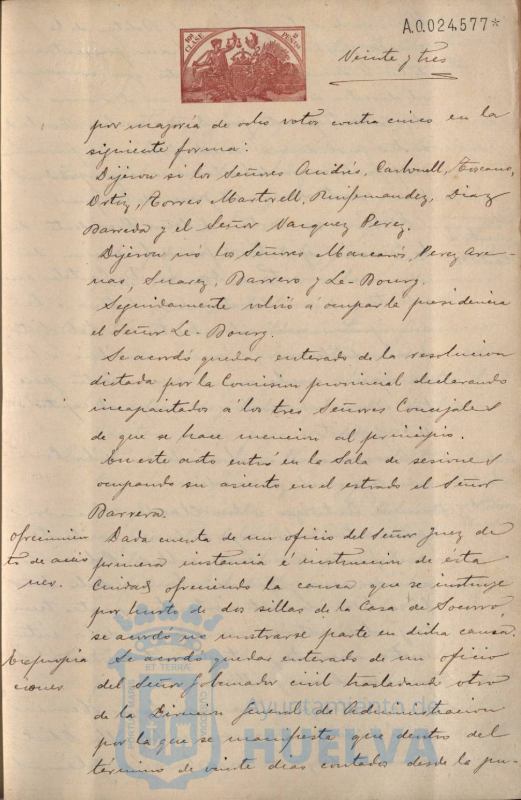 A.0.024.577*
10ª CLASE
2 PESETAS
Veinte y tres
por mayoría de ocho votos contra cinco en la
siguiente forma:
Dijeron si los Señores Andrés, Carbonell, Toscano,
Ortiz, Torres Martorell, Ruifernandez, Diaz
Barreda y el Señor Vazquez Perez.
Dijeron nó los Señores Mascarós, Perez Are-
nas, Suarez, Barrero y Le-Bourg.
Seguidamente volvió á ocupar la presidencia
el Señor Le-Bourg.
Se acordó quedar enterado de la resolucion
dictada por la Comision provincial declarando
incapacitados á los tres Señores Concejales
de que se hace mencion al principio.
En este acto entró en la Sala de sesiones
ocupando su asiento en el estrado el Señor
Barrera.
ofrecimien
to de accio
nes.
Dada cuenta de un oficio del Señor Juez de
primera instancia é instruccion de ésta
Ciudad ofreciendo la causa que se instruye
por hurto de dos sillas de la Casa de Socorro
se acordó no mostrarse parte en dicha causa.
Expropia
ciones
Se acordó quedar enterado de un oficio
del Señor Gobernador civil trasladando otro
de la Direccion General de Administracion
por la que se manifiesta que dentro del
término de veinte dias contados desde la pu-
Ayuntamiento de
HUELVA